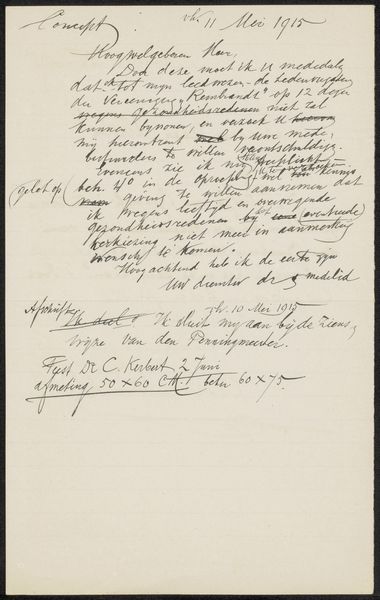 Concept
11 Mei 1915
Hoogwelgeboren Heer,
Door deze moet ik U mededeelen
dat ik tot mijn leedwezen de ledenvergadering
der Vereeniging „Rembrandt" op 12 dezer
wegens gezondheidsredenen niet zal
kunnen bijwonen, en verzoek U
mij hieromtrent bij Uwe mede-
bestuurders te willen verontschuldigen.
Evenens zie ik mij verplicht
(gelet op) beh. 4o in de oproeping kennis
geving te willen aannemen dat
ik wegens leeftijd en overwegende
gezondheidsredenen bij (eventueele)
herkiezing niet meer in aanmerking
wensch te komen.
Hoogachtend heb ik de eer te zijn
Uw dienstw dr medelid
Afschrift
10 Mei 1915
Ik sluit mij aan bij de ziens-
wijze van den Penningmeester.
Feest Dr C. Kerbert 2 Juni
afmeting 50 x 60 cM. beter 60 x 75.